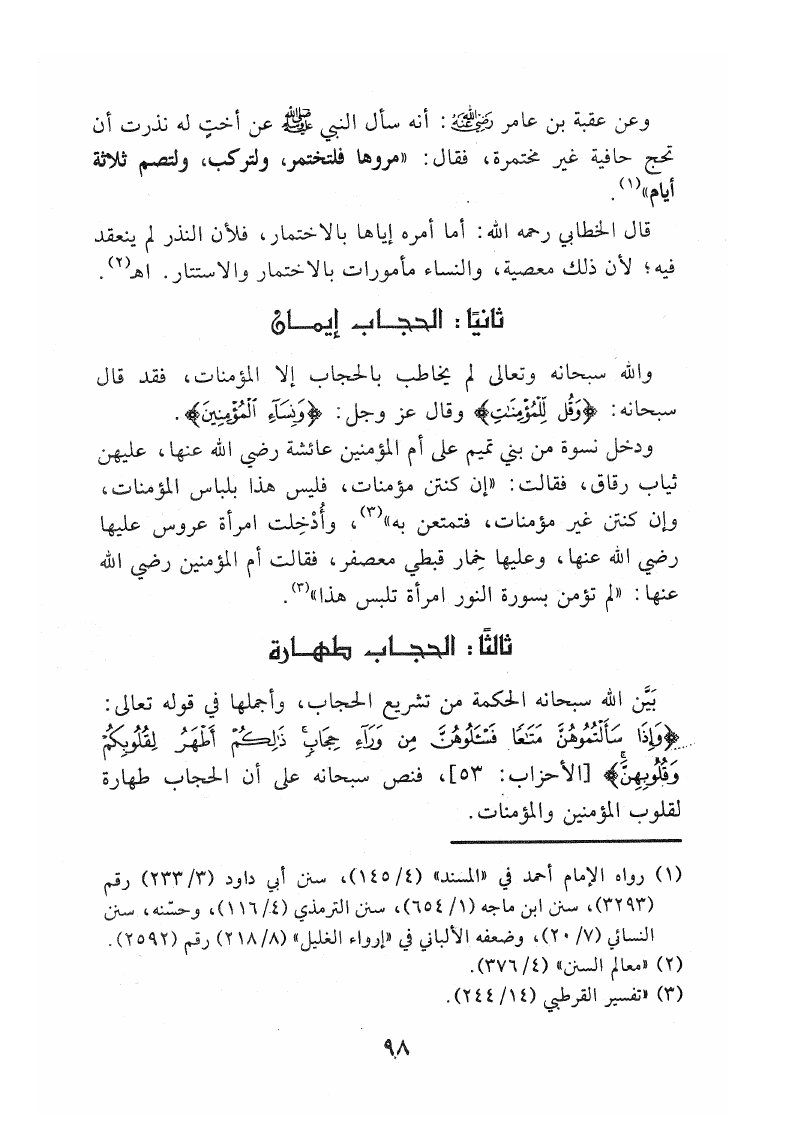 وعن عقبة بن عامر رضي الله عنه: أنه سأل النبي ﷺ عن أختٍ له نذرت أن
تحج حافية غير مختمرة، فقال: «مروها فلتختمر، ولتركب، ولتصم ثلاثة
أيام»(١).
قال الخطابي رحمه الله: أما أمره إياها بالاختمار، فلأن النذر لم ينعقد
فيه؛ لأن ذلك معصية، والنساء مأمورات بالاختمار والاستتار. اهـ(٢).
ثانيًا: الحجاب إيمان
والله سبحانه وتعالى لم يخاطب بالحجاب إلا المؤمنات، فقد قال
سبحانه: ﴿وَقُل لِّلْمُؤْمِنَٰتِ﴾ وقال عز وجل: ﴿وَنِسَآءِ ٱلْمُؤْمِنِينَ﴾.
ودخل نسوة من بني تميم على أم المؤمنين عائشة رضي الله عنها، عليهن
ثياب رقاق، فقالت: «إن كنتن مؤمنات، فليس هذا بلباس المؤمنات،
وإن كنتن غير مؤمنات، فتمتعن به»(٣)، وأُدْخِلت امرأة عروس عليها
رضي الله عنها، وعليها خِمار قبطي معصفر، فقالت أم المؤمنين رضي الله
عنها: «لم تؤمن بسورة النور امرأة تلبس هذا»(٣).
ثالثًا: الحجاب طهارة
بَيَّن الله سبحانه الحكمة من تشريع الحجاب، وأجملها في قوله تعالى:
﴿وَإِذَا سَأَلْتُمُوهُنَّ مَتَٰعًا فَسْـَٔلُوهُنَّ مِن وَرَآءِ حِجَابٍۚ ذَٰلِكُمْ أَطْهَرُ لِقُلُوبِكُمْ
وَقُلُوبِهِنَّۚ﴾ [الأحزاب: ٥٣]، فنص سبحانه على أن الحجاب طهارة
لقلوب المؤمنين والمؤمنات.
(١) رواه الإمام أحمد في «المسند» (٤/ ١٤٥)، سنن أبي داود (٣/ ٢٣٣) رقم
(٣٢٩٣)، سنن ابن ماجه (١/ ٦٥٤)، سنن الترمذي (٤/ ١١٦)، وحسّنه، سنن
النسائي (٧/ ٢٠)، وضعفه الألباني في «إرواء الغليل» (٨/ ٢١٨) رقم (٢٥٩٢).
(٢) «معالم السنن» (٤/ ٣٧٦).
(٣) «تفسير القرطبي (١٤/ ٢٤٤).
٩٨